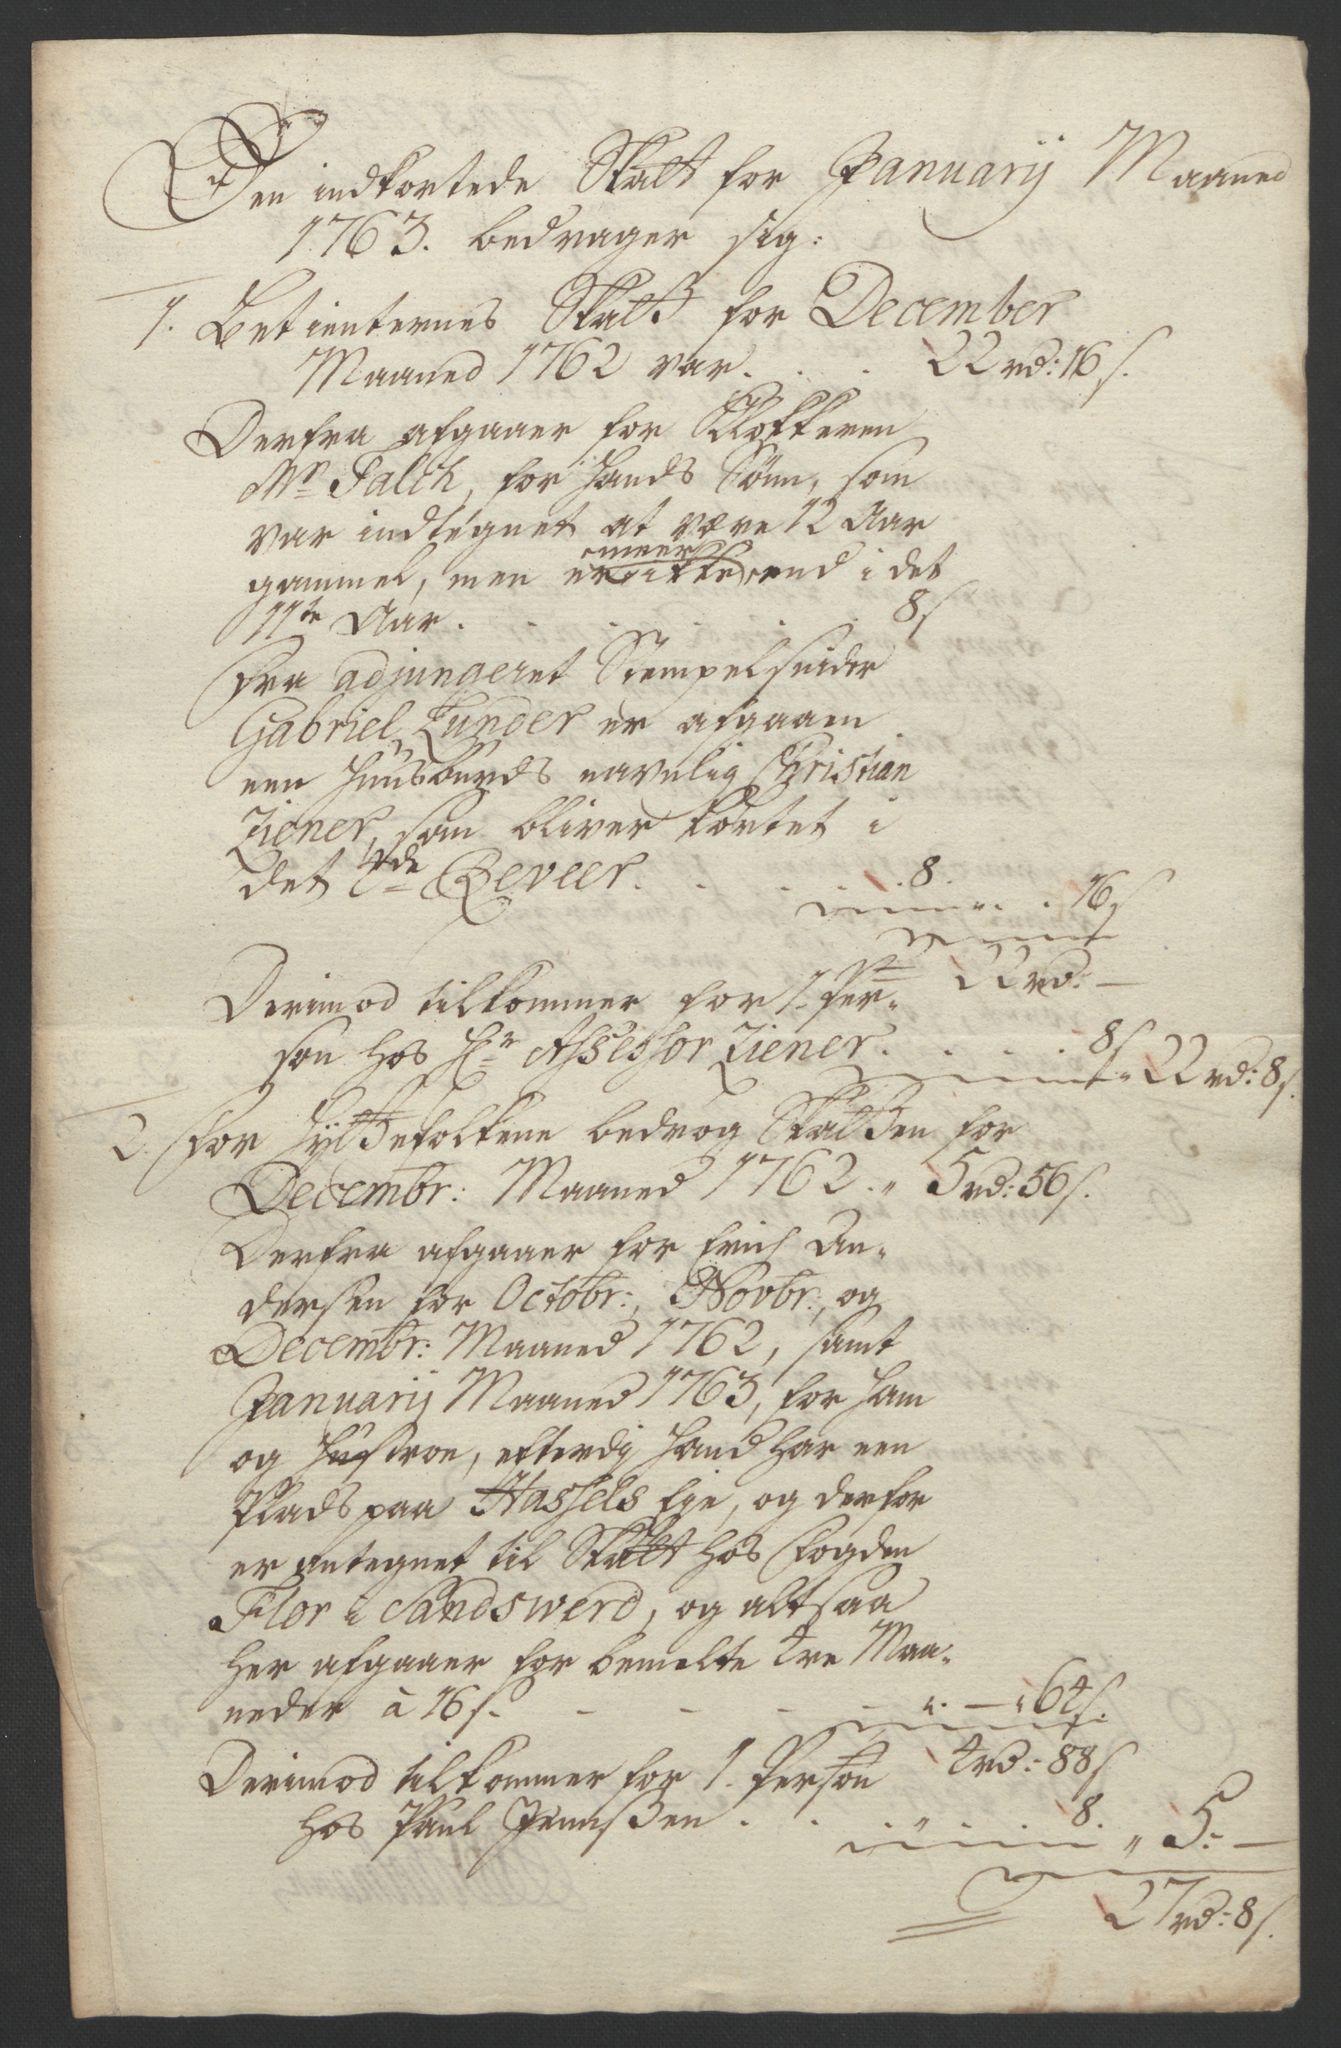 Den indkortede Skatt for Januarij Maaned
1763. bedrager sig:
1. Betienternes Skatt for December
Maaned 1762 var . . . 22 rd: 16 s.
Derfra afgaaer for Klokkeren
Mr Falck, for hands Sönn, som
var indtegnet at være 12 Aar
gammel, men er ikke meer end i det
11te Aar . . . . . 8 s
Fra adjungeret Stempelsnider
Gabriel Lunder er afgaaen
een huusbonds navnlig Christian
Ziener, som bliver kortet i
det 4de Reveer . . . 8. . 16 s
22 rd: —
Derimod tilkommer for 1. Per-
son hos Hr Assessor Ziener . . . . 8 s 22 rd: 8 s.
2. For Hyttefolkene bedrog Skatten for
Decembr: Maaned 1762 . " 5 rd: 56 s.
Derfra afgaaer for Erich An-
dersen for Octobr:, Novbr:, og
Decembr: Maaned 1762, samt
Januarij Maaned 1763, for ham
og Hustroe, efterdi hand har een
Plads paa Hassels Eje, og derfor
er antegnet til Skatt hos Fogden
Flor i Sandswerd, og altsaa
her afgaaer for bemelte tre Maa-
neder à 16 s. - - - - - " — " 64 s.
4 rd: 88 s
Derimod tilkommer for 1. Person
hos Paul Jennsen . . . " . . 8. " 5: —
27 rd: 8 s.